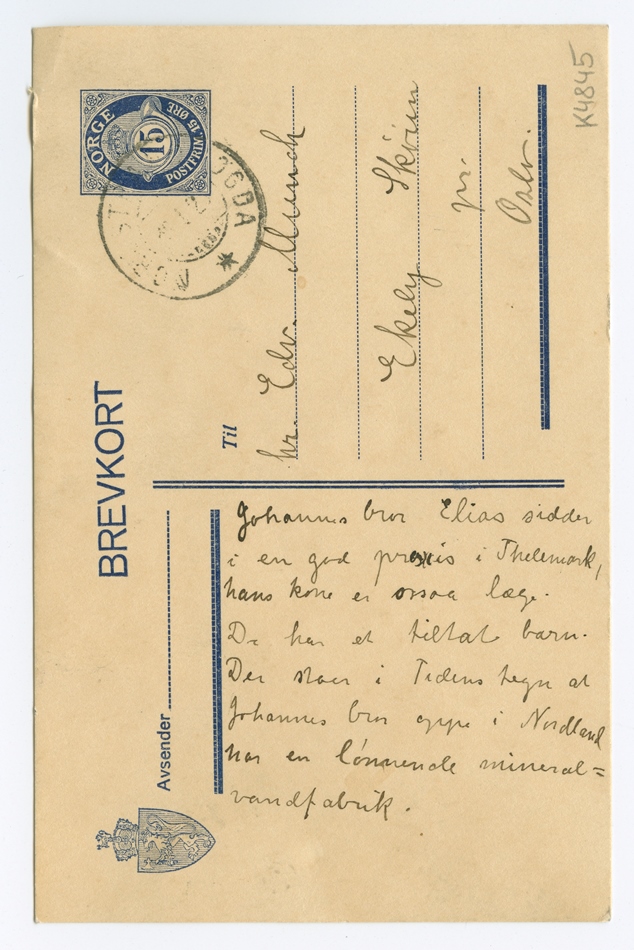 K4845
NORGE
15
POSTFRIM. 15 ØRE
BREVKORT
Til
hr. Edv. Munch
Ekely Skøien
pr.
Oslo.
Avsender
Johannes bror Elias sidder
i en god praxis i Thelemark,
hans kone er ossaa læge.
De har et tiltat barn.
Der staar i Tidens tegn at
Johannes bror oppe i Nordland
har en lönnende mineral=
vandfabrik.